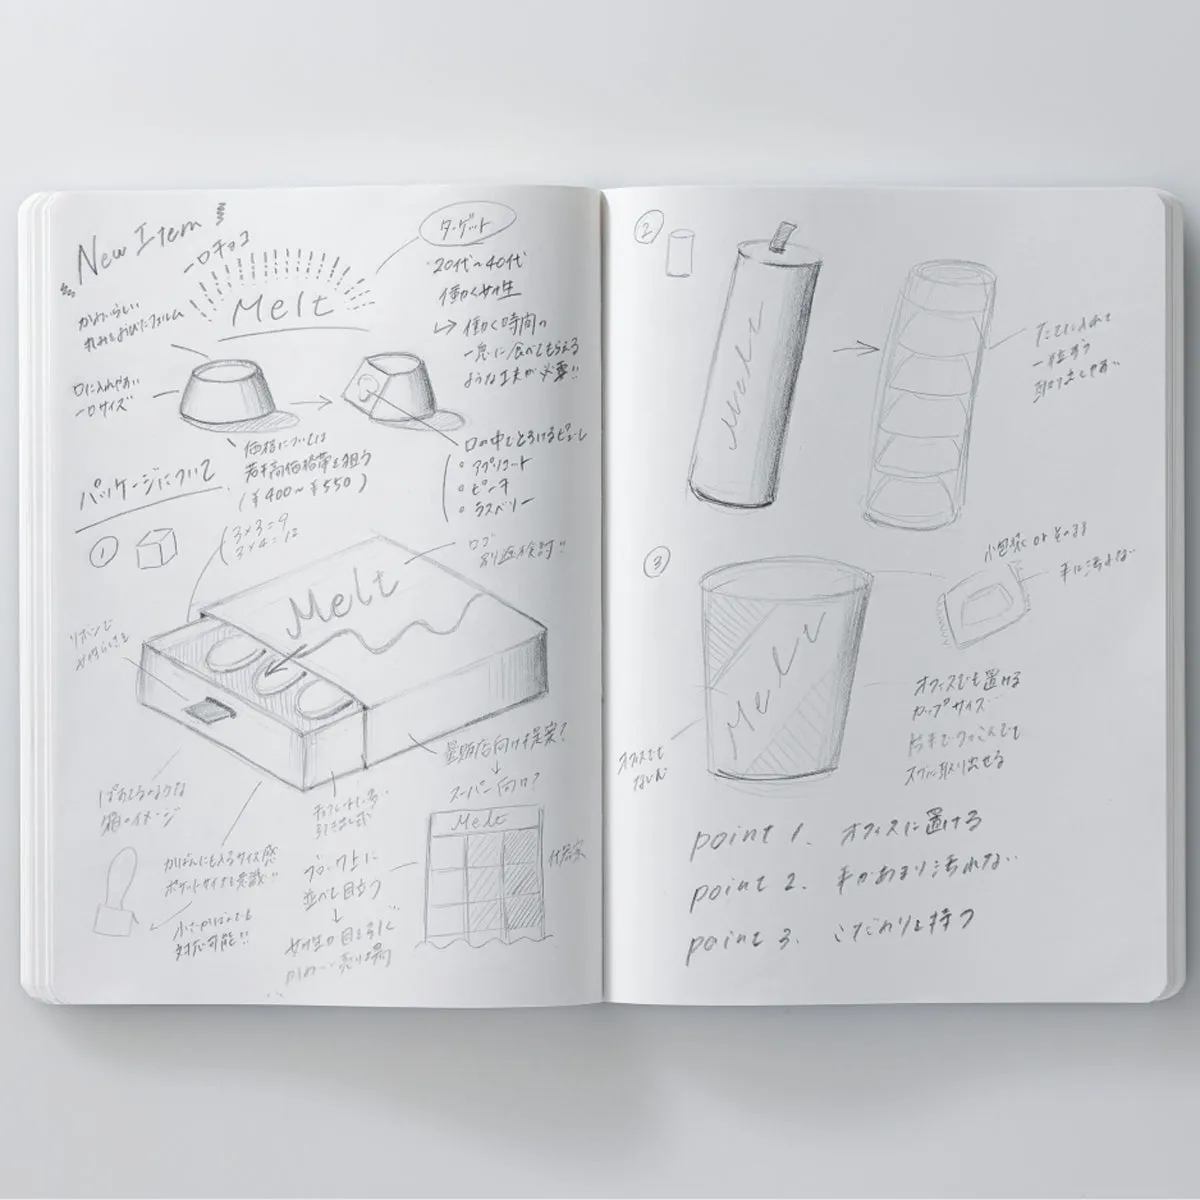 New Item
一口チョコ
Melt
かわいらしい
丸みをおびたフォルム
口に入れやすい
一口サイズ
ターゲット
20代〜40代
働く女性
↳ 働く時間の
一息に食べてもらえる
ような工夫が必要!!
価格については
若干高価格帯を狙う
(¥400〜¥550)
口の中でとろけるピューレ
○ アプリコット
○ ピーチ
○ ラズベリー
パッケージについて
①
3×3=9
3×4=12
ロゴ
別途検討!!
Melt
リボンで
女性らしさを
箱のイメージ
引き出し式
量販店向け提案?
↓
スーパー向け?
かばんにも入るサイズ感
ポケットサイズを意識!!
小さいかばんでも
対応可能!!
ブロック上に
並べて目立つ
↓
女性の目を引く
かわいい売り場
Melt
②
Melt
たてに入れて
一粒ずつ
取り出しやすい
③
Melt
小包装 or そのまま
手に汚れない
オフィスでも置ける
カップサイズ
片手でつっこんでも
スグに取り出せる
オフィスでも
point 1. オフィスに置ける
point 2. 手があまり汚れない
point 3. こだわりを持つ